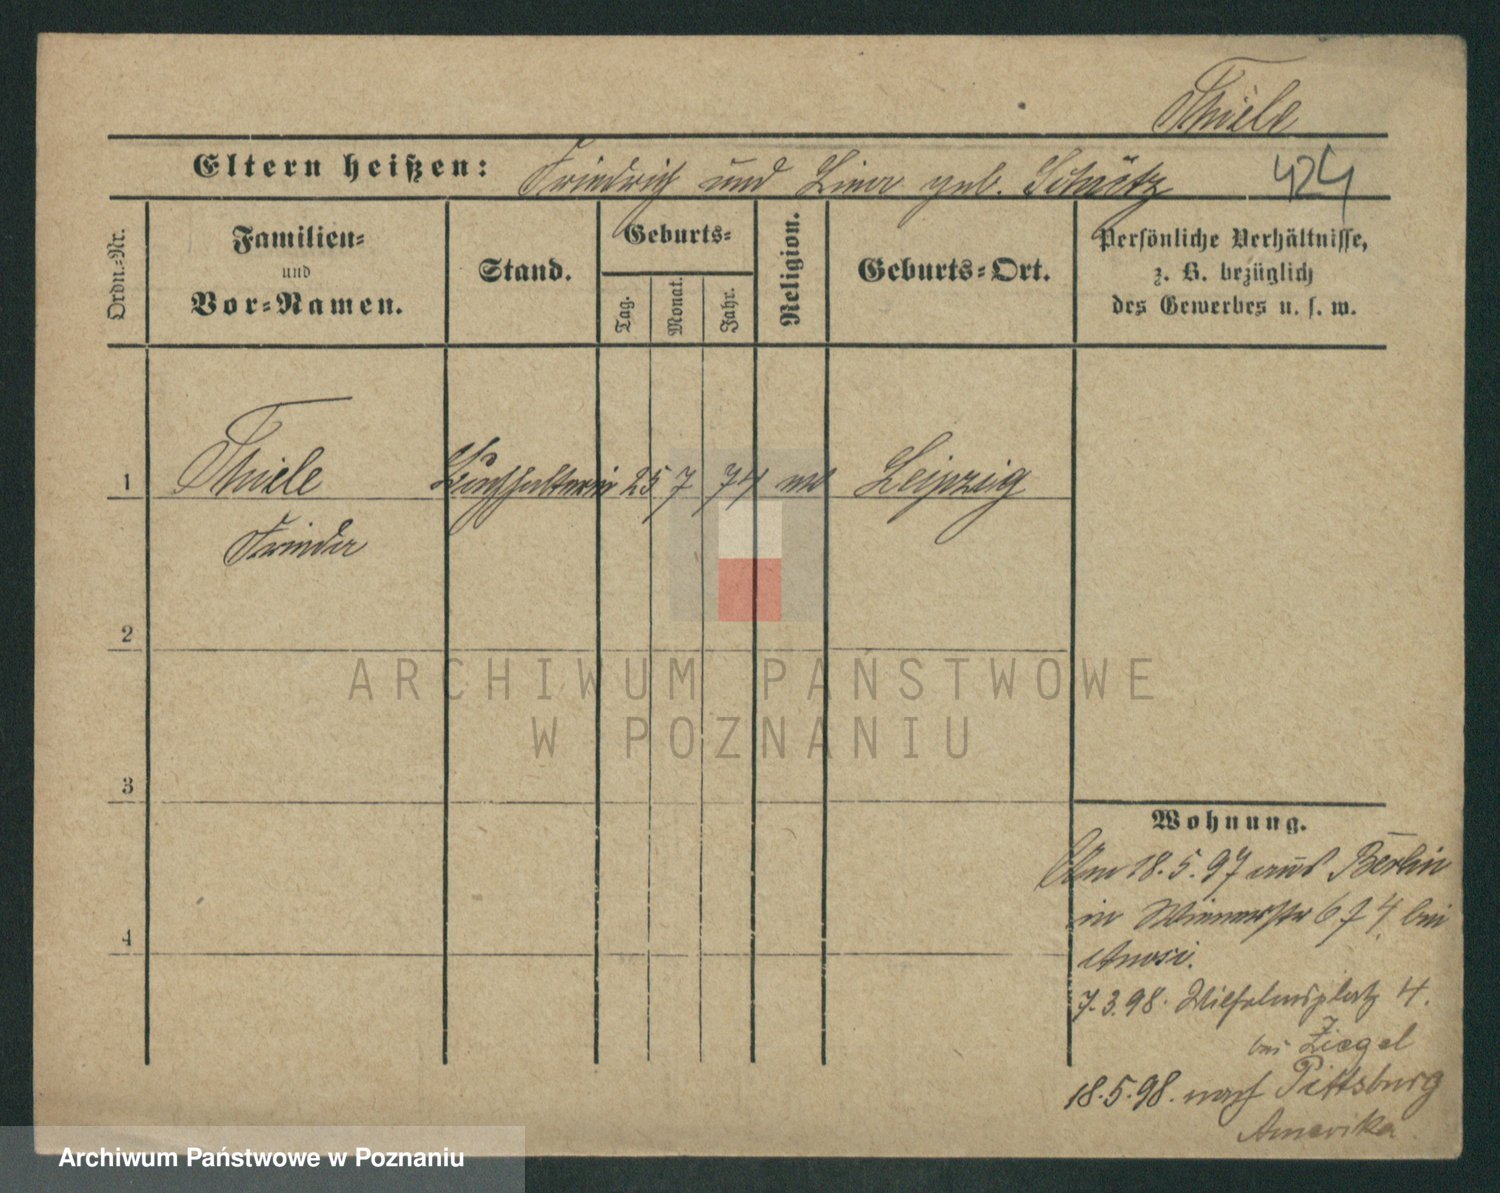 Thiele
Eltern heißen: Friedrich und Lina geb. Schütz 424
Ordn.-Nr.
Familien-
und
Vor-Namen.
Stand.
Geburts-
Tag.
Monat.
Jahr.
Religion.
Geburts-Ort.
Persönliche Verhältnisse,
z. B. bezüglich
des Gewerbes u. s. w.
1 Thiele Buchhalterin 25 7 74 ev Leipzig
Frieda
2
ARCHIWUM PAŃSTWOWE
W POZNANIU
3
Wohnung.
Am 18.5.97 aus Berlin
in Wienerstr 6 f 4. bei
4
7.3.98. Wilhelmsplatz 4.
bei Ziegel
18.5.98. nach Pittsburg
Amerika.
Archiwum Państwowe w Poznaniu